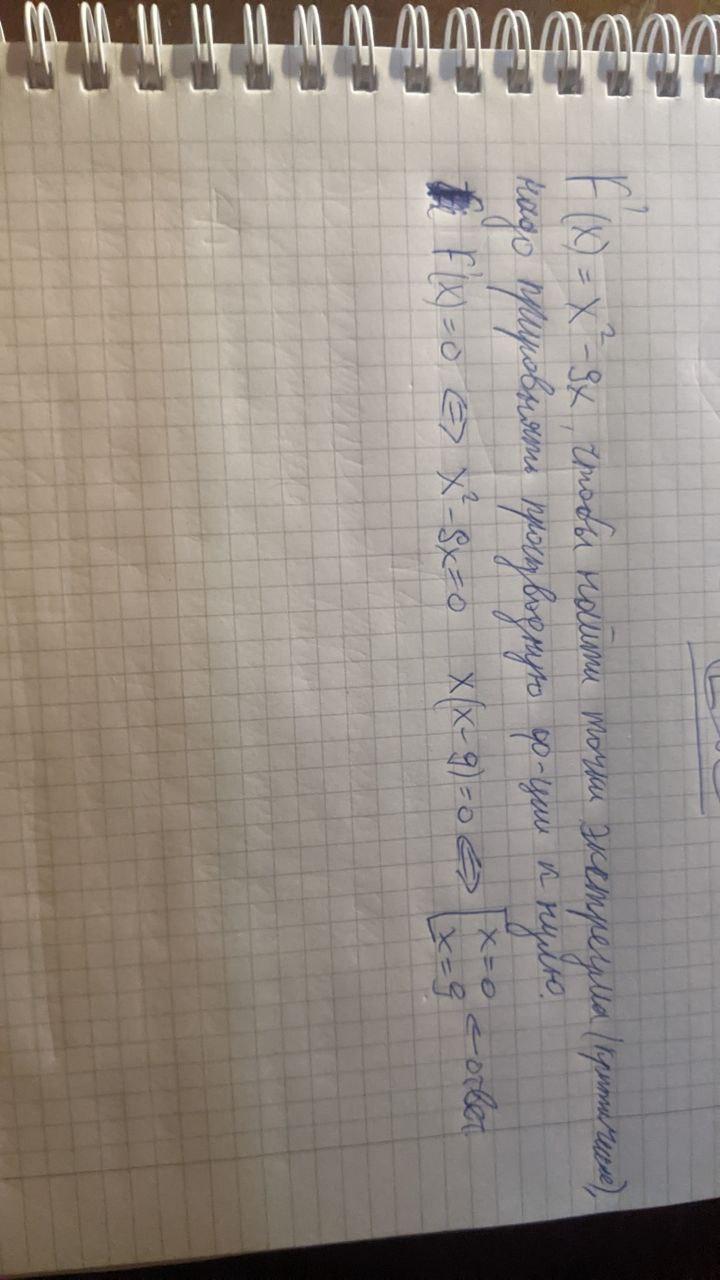 f'(x) = x² - 9x, чтобы найти точки экстремума (критичиские),
надо приуровнять производную ф-ции к нулю.
f'(x) = 0 ⇔ x² - 9x = 0 x(x - 9) = 0 ⇔ [x = 0
[x = 9 ← ответ